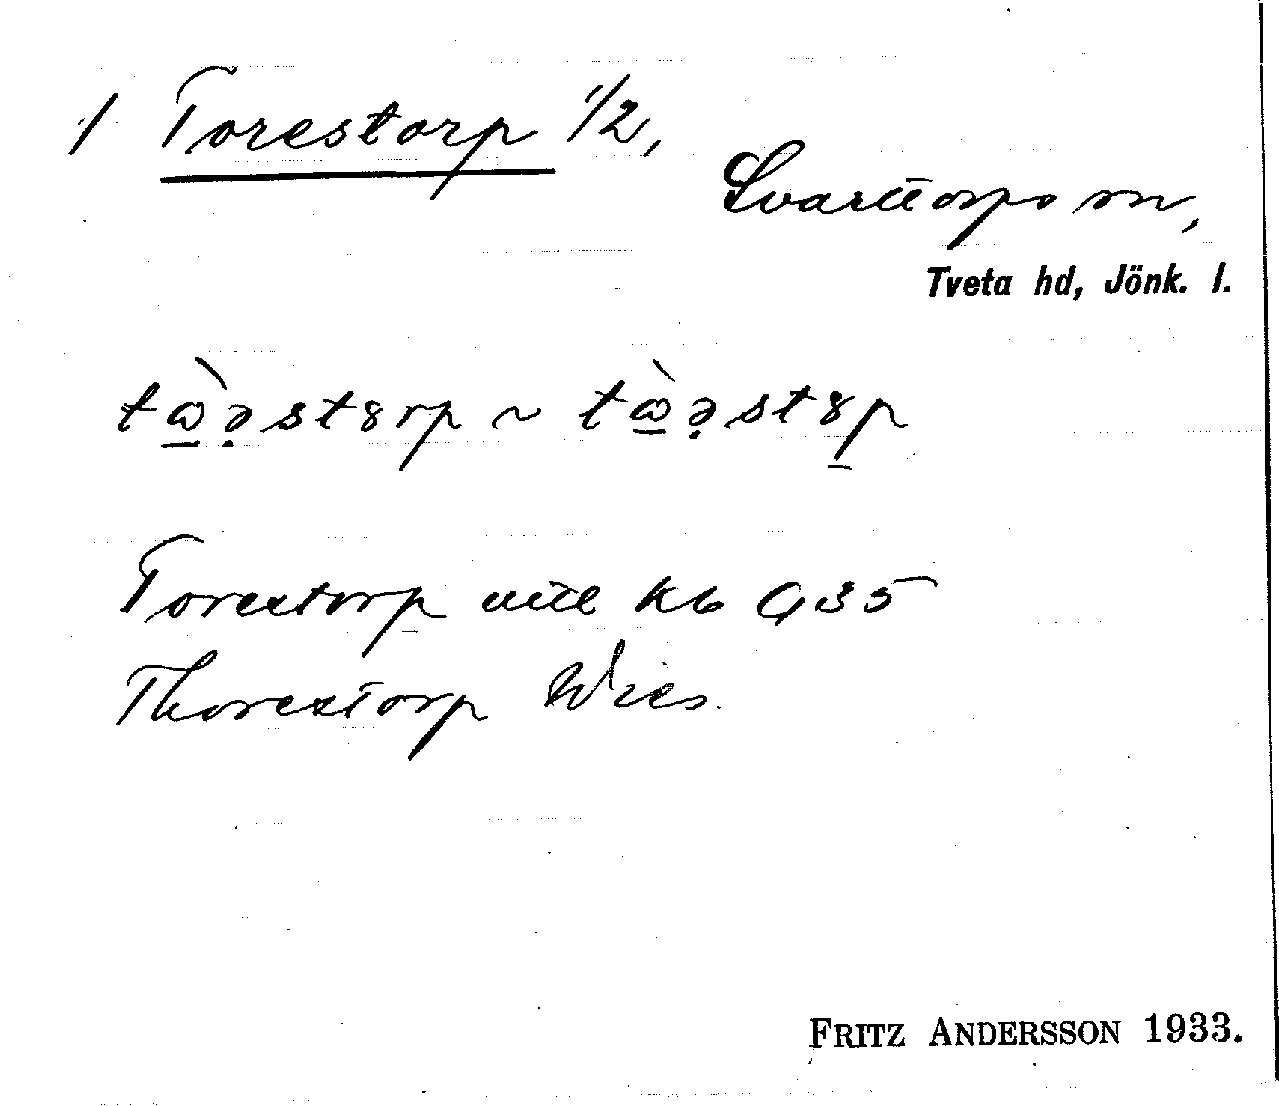 1 Torestorp 1/2,
Svarttorps sn,
Tveta hd, Jönk. l.
tὼ̱ə̣stȣrp ~ tὼ̱ə̣stȣp̱
Torestorp uttl kb 935
Thorestorp Wies.
FRITZ ANDERSSON 1933.